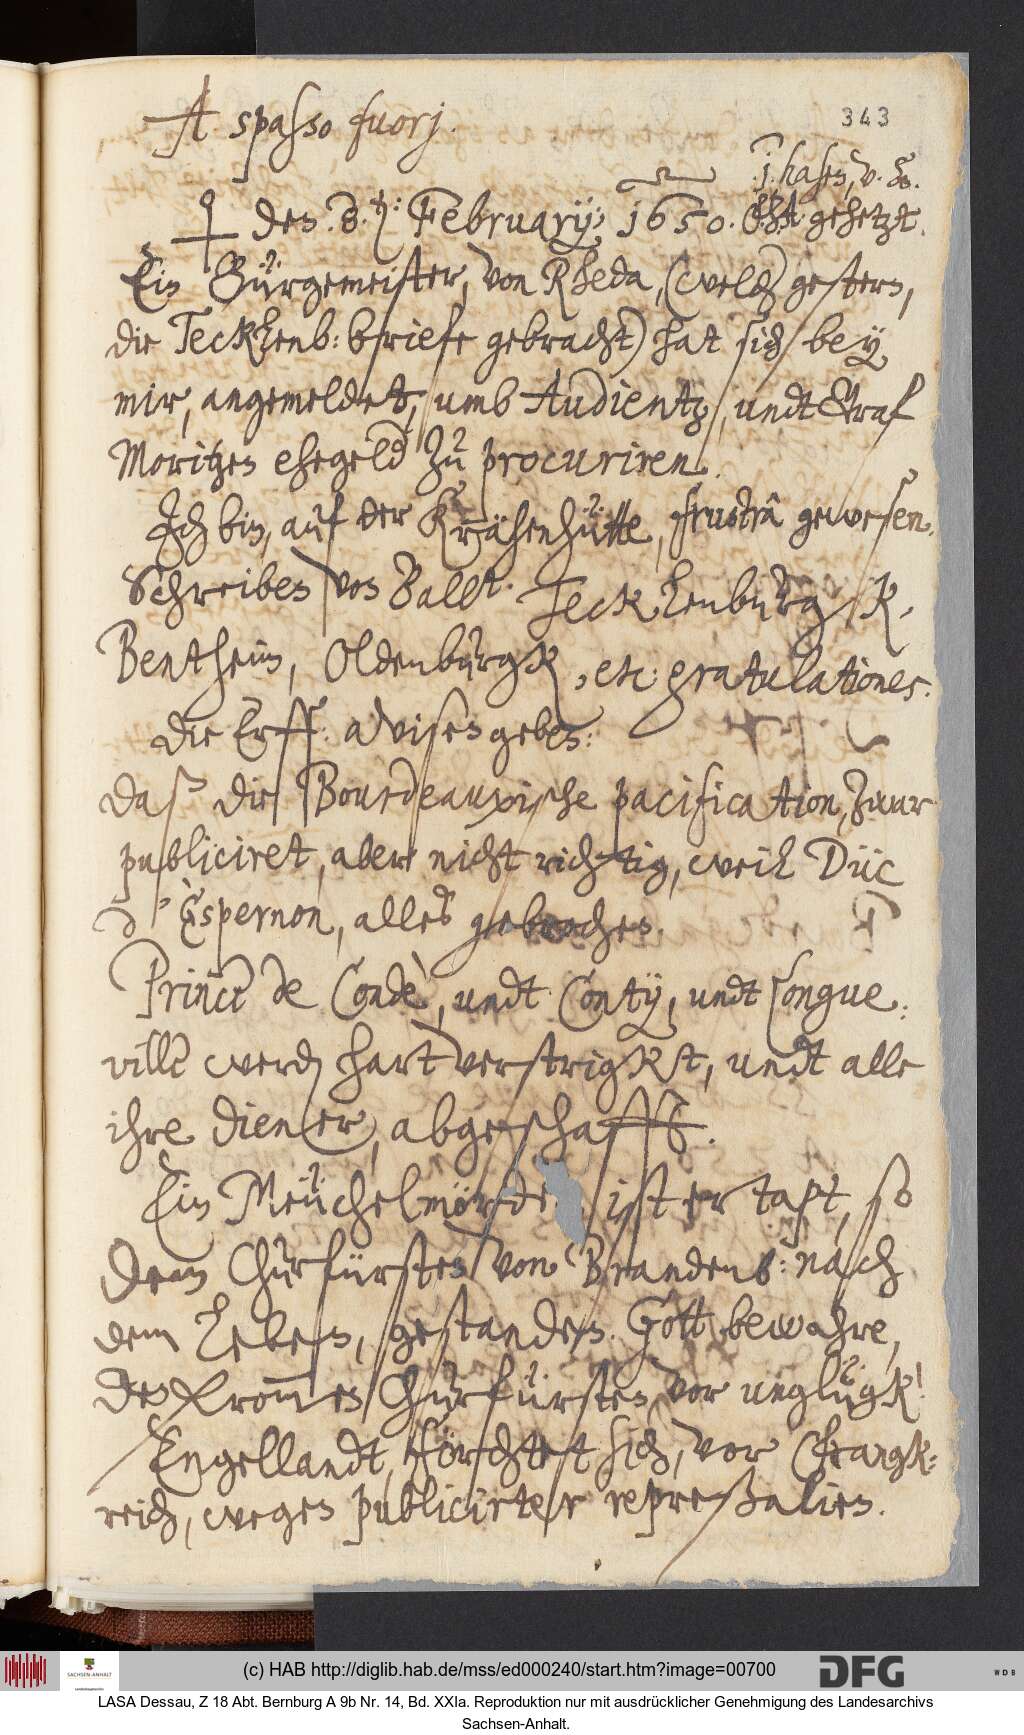 A spasso fuorj.
343
.j. hasen, v. B.
♀ den. 8. ten: February; 1650. gehetzt.
Ein Bürgemeister, von Rheda, (welcher gestern,
die Tecklenb: briefe gebracht) hat sich bey
mir, angemeldet, umb Audientz, undt Graf
Moritzen ehegeld zu procuriren.
Ich bin, auf der Krähenhütte, frustrâ gewesen.
Schreiben von Ballst. Tecklenburgk,
Bentheim, Oldenburgk, etc: gratulationes.
Die Erff. advisen geben:
Daß die Bourdeauxische pacification, zwar
publiciret, aber nicht richtig, weil Düc
d'Espernon, alles gebrochen.
Prince de Condè, undt Conty, undt Longue:
ville werden hart verstrigkt, undt alle
ihre diener, abgeschafft.
Ein Meüchelmörder ist ertapt, so
Dem Churfürsten von Brandenb: nach
dem Leben, gestanden. Gott bewahre,
den fromen Churfürsten, vor unglügk!
Engellandt, förchtet sich, vor Frangk-
reich, wegen publicirter repreßalien.
(c) HAB http://diglib.hab.de/mss/ed000240/start.htm?image=00700
SACHSEN-ANHALT
DFG
WDB
LASA Dessau, Z 18 Abt. Bernburg A 9b Nr. 14, Bd. XXIa. Reproduktion nur mit ausdrücklicher Genehmigung des Landesarchivs
Sachsen-Anhalt.